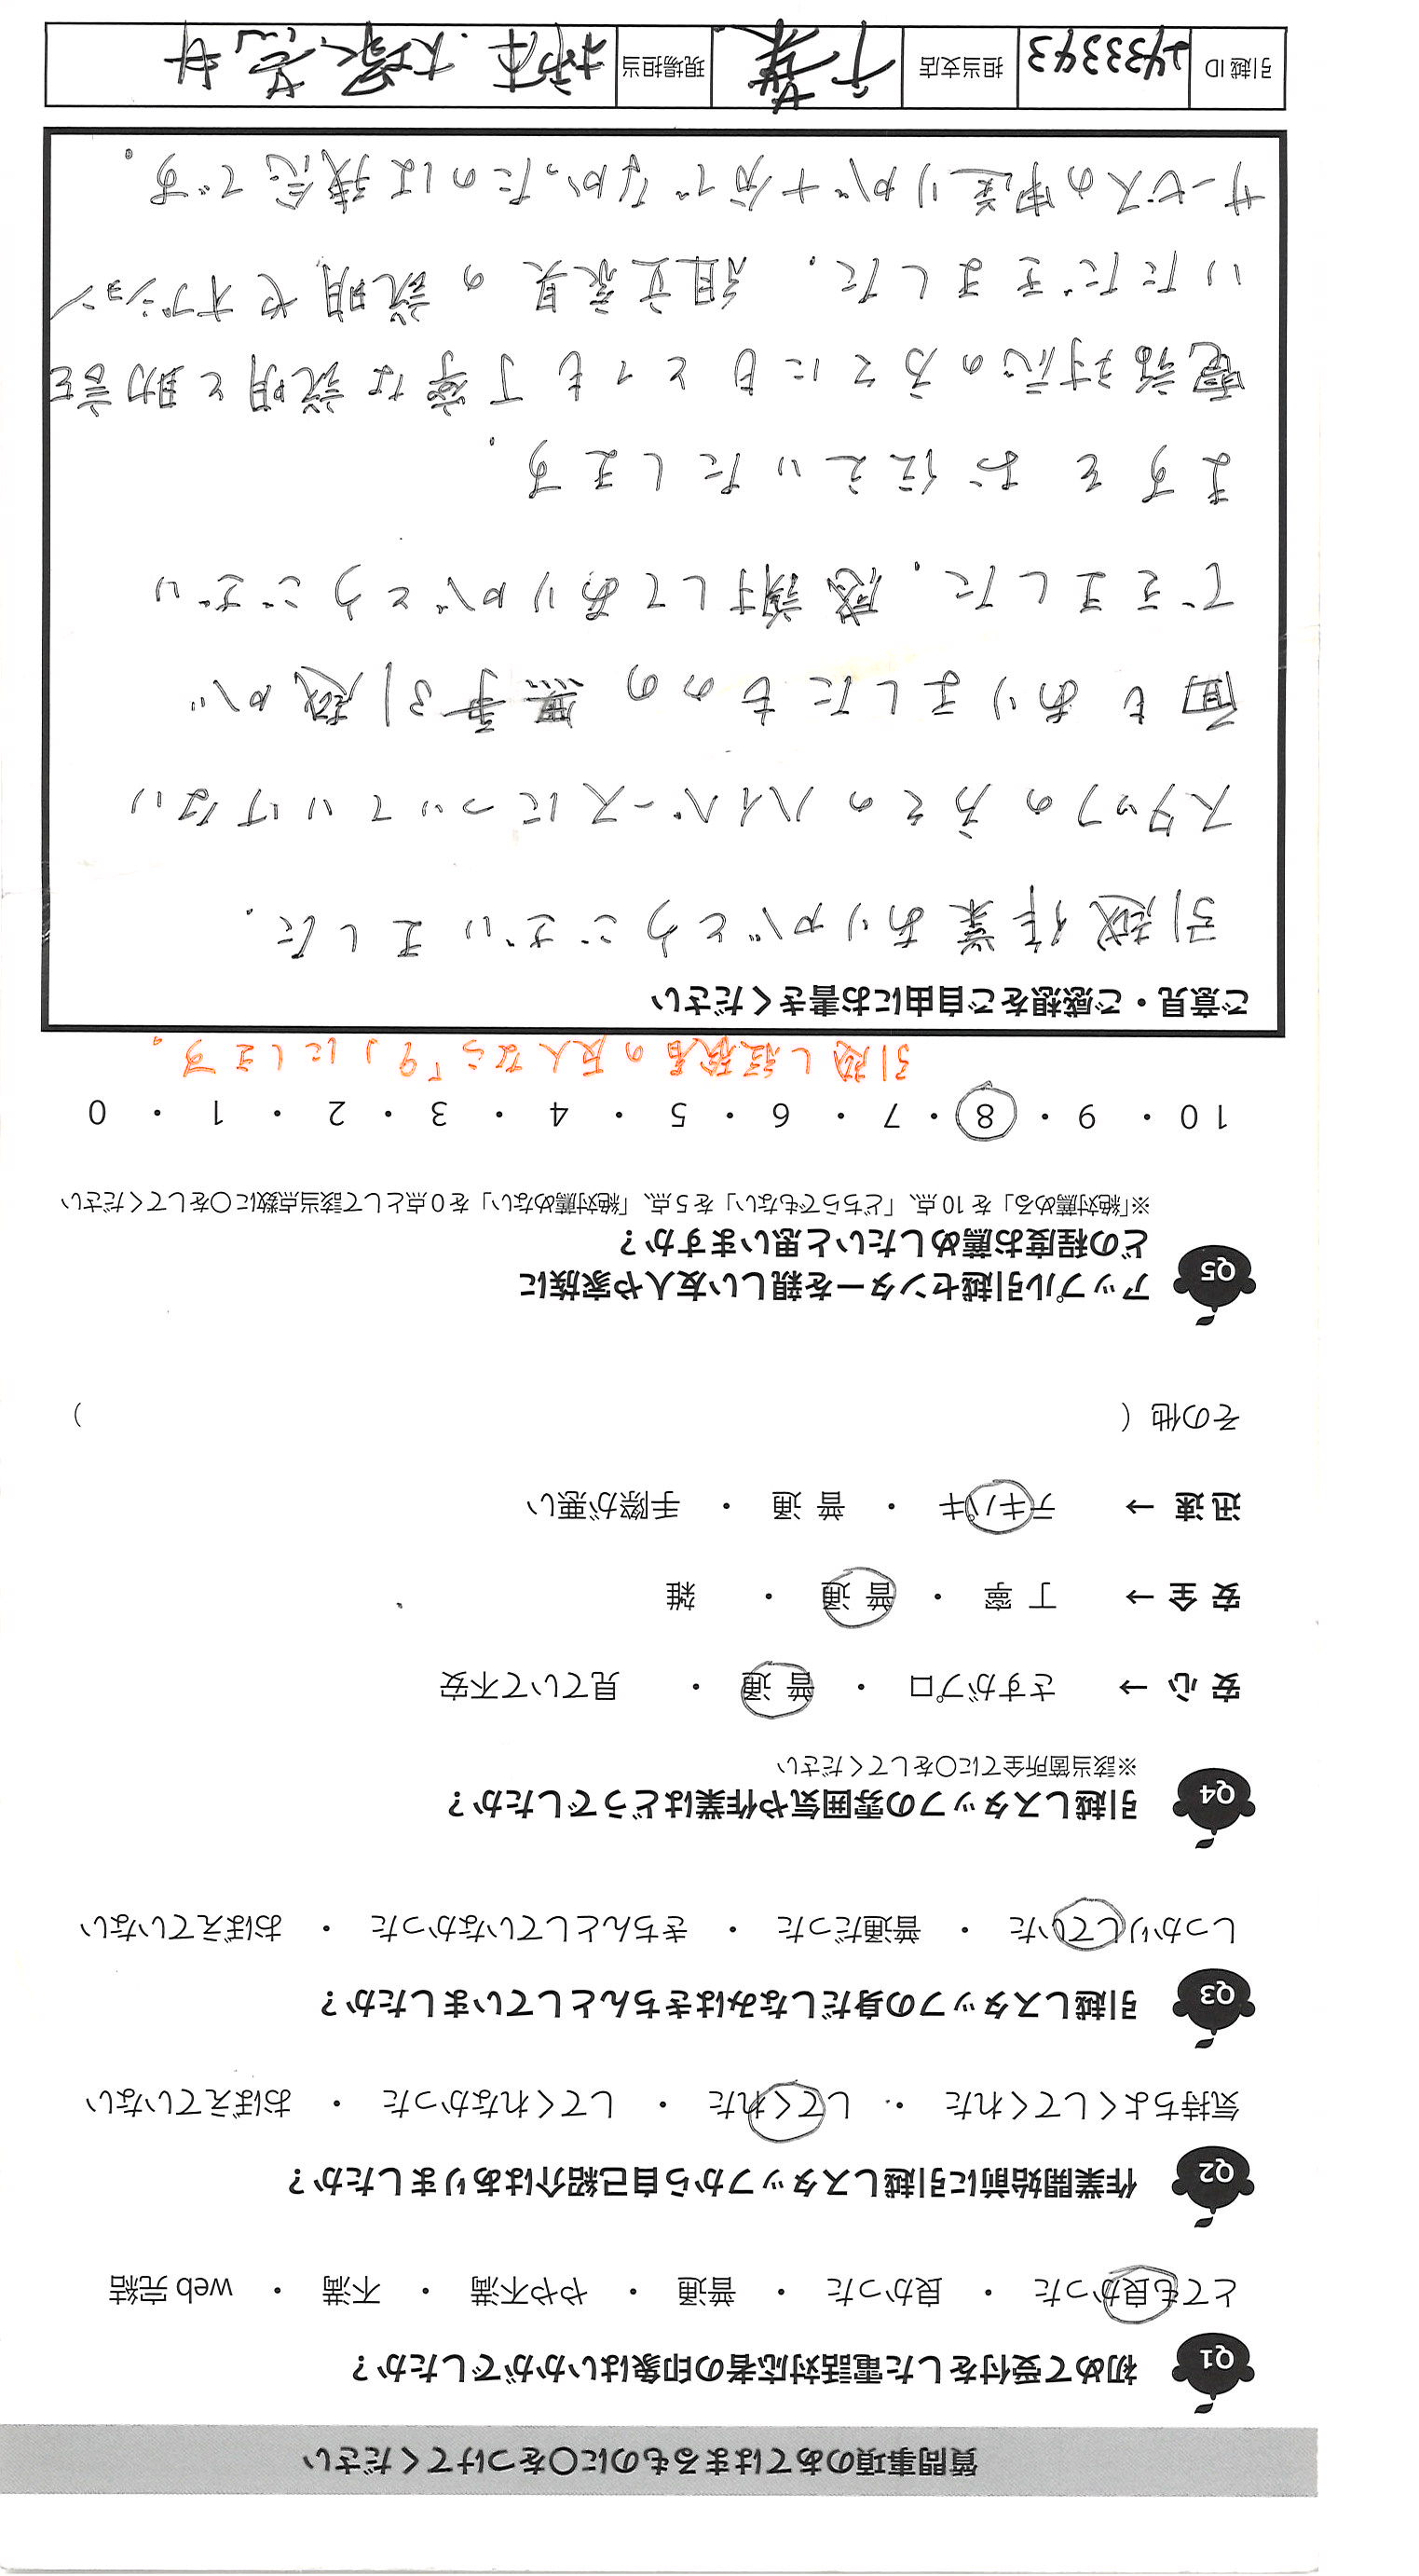 質問事項のあてはまるものに〇をつけてください
Q1 初めて受付をした電話対応者の印象はいかがでしたか？
とても良かった ・ 良かった ・ 普通 ・ やや不満 ・ 不満 ・ web 完結
Q2 作業開始前に引越しスタッフから自己紹介はありましたか？
気持ちよくしてくれた ・ してくれた ・ してくれなかった ・ おぼえていない
Q3 引越しスタッフの身だしなみはきちんとしていましたか？
しっかりしていた ・ 普通だった ・ きちんとしていなかった ・ おぼえていない
Q4 引越しスタッフの雰囲気や作業はどうでしたか？
※該当箇所全てに〇をしてください
安 心 → さすがプロ ・ 普 通 ・ 見ていて不安
安 全 → 丁 寧 ・ 普 通 ・ 雑
迅 速 → テキパキ ・ 普 通 ・ 手際が悪い
その他（ ）
Q5 アップル引越センターを親しい友人や家族に
どの程度お薦めしたいと思いますか？
※「絶対薦める」を 10 点、「どちらでもない」を 5 点、「絶対薦めない」を 0 点として該当点数に〇をしてください
10 ・ 9 ・ 8 ・ 7 ・ 6 ・ 5 ・ 4 ・ 3 ・ 2 ・ 1 ・ 0
引越し経験者の友人なら「9」にします。
ご意見・ご感想をご自由にお書きください
引越作業ありがとうございました。
スタッフの方々のハイペースについていけない
面もありましたものの無事引越が
できました。感謝してありがとうござい
ますを お伝えいたします。
電話対応の方々にもとても丁寧な説明と助言を
いただきました。組立家具の説明やオプション
サービスの申送りが十分でなかったのは残念です。
引越 ID 2433393 担当支店 千葉 現場担当 大塚